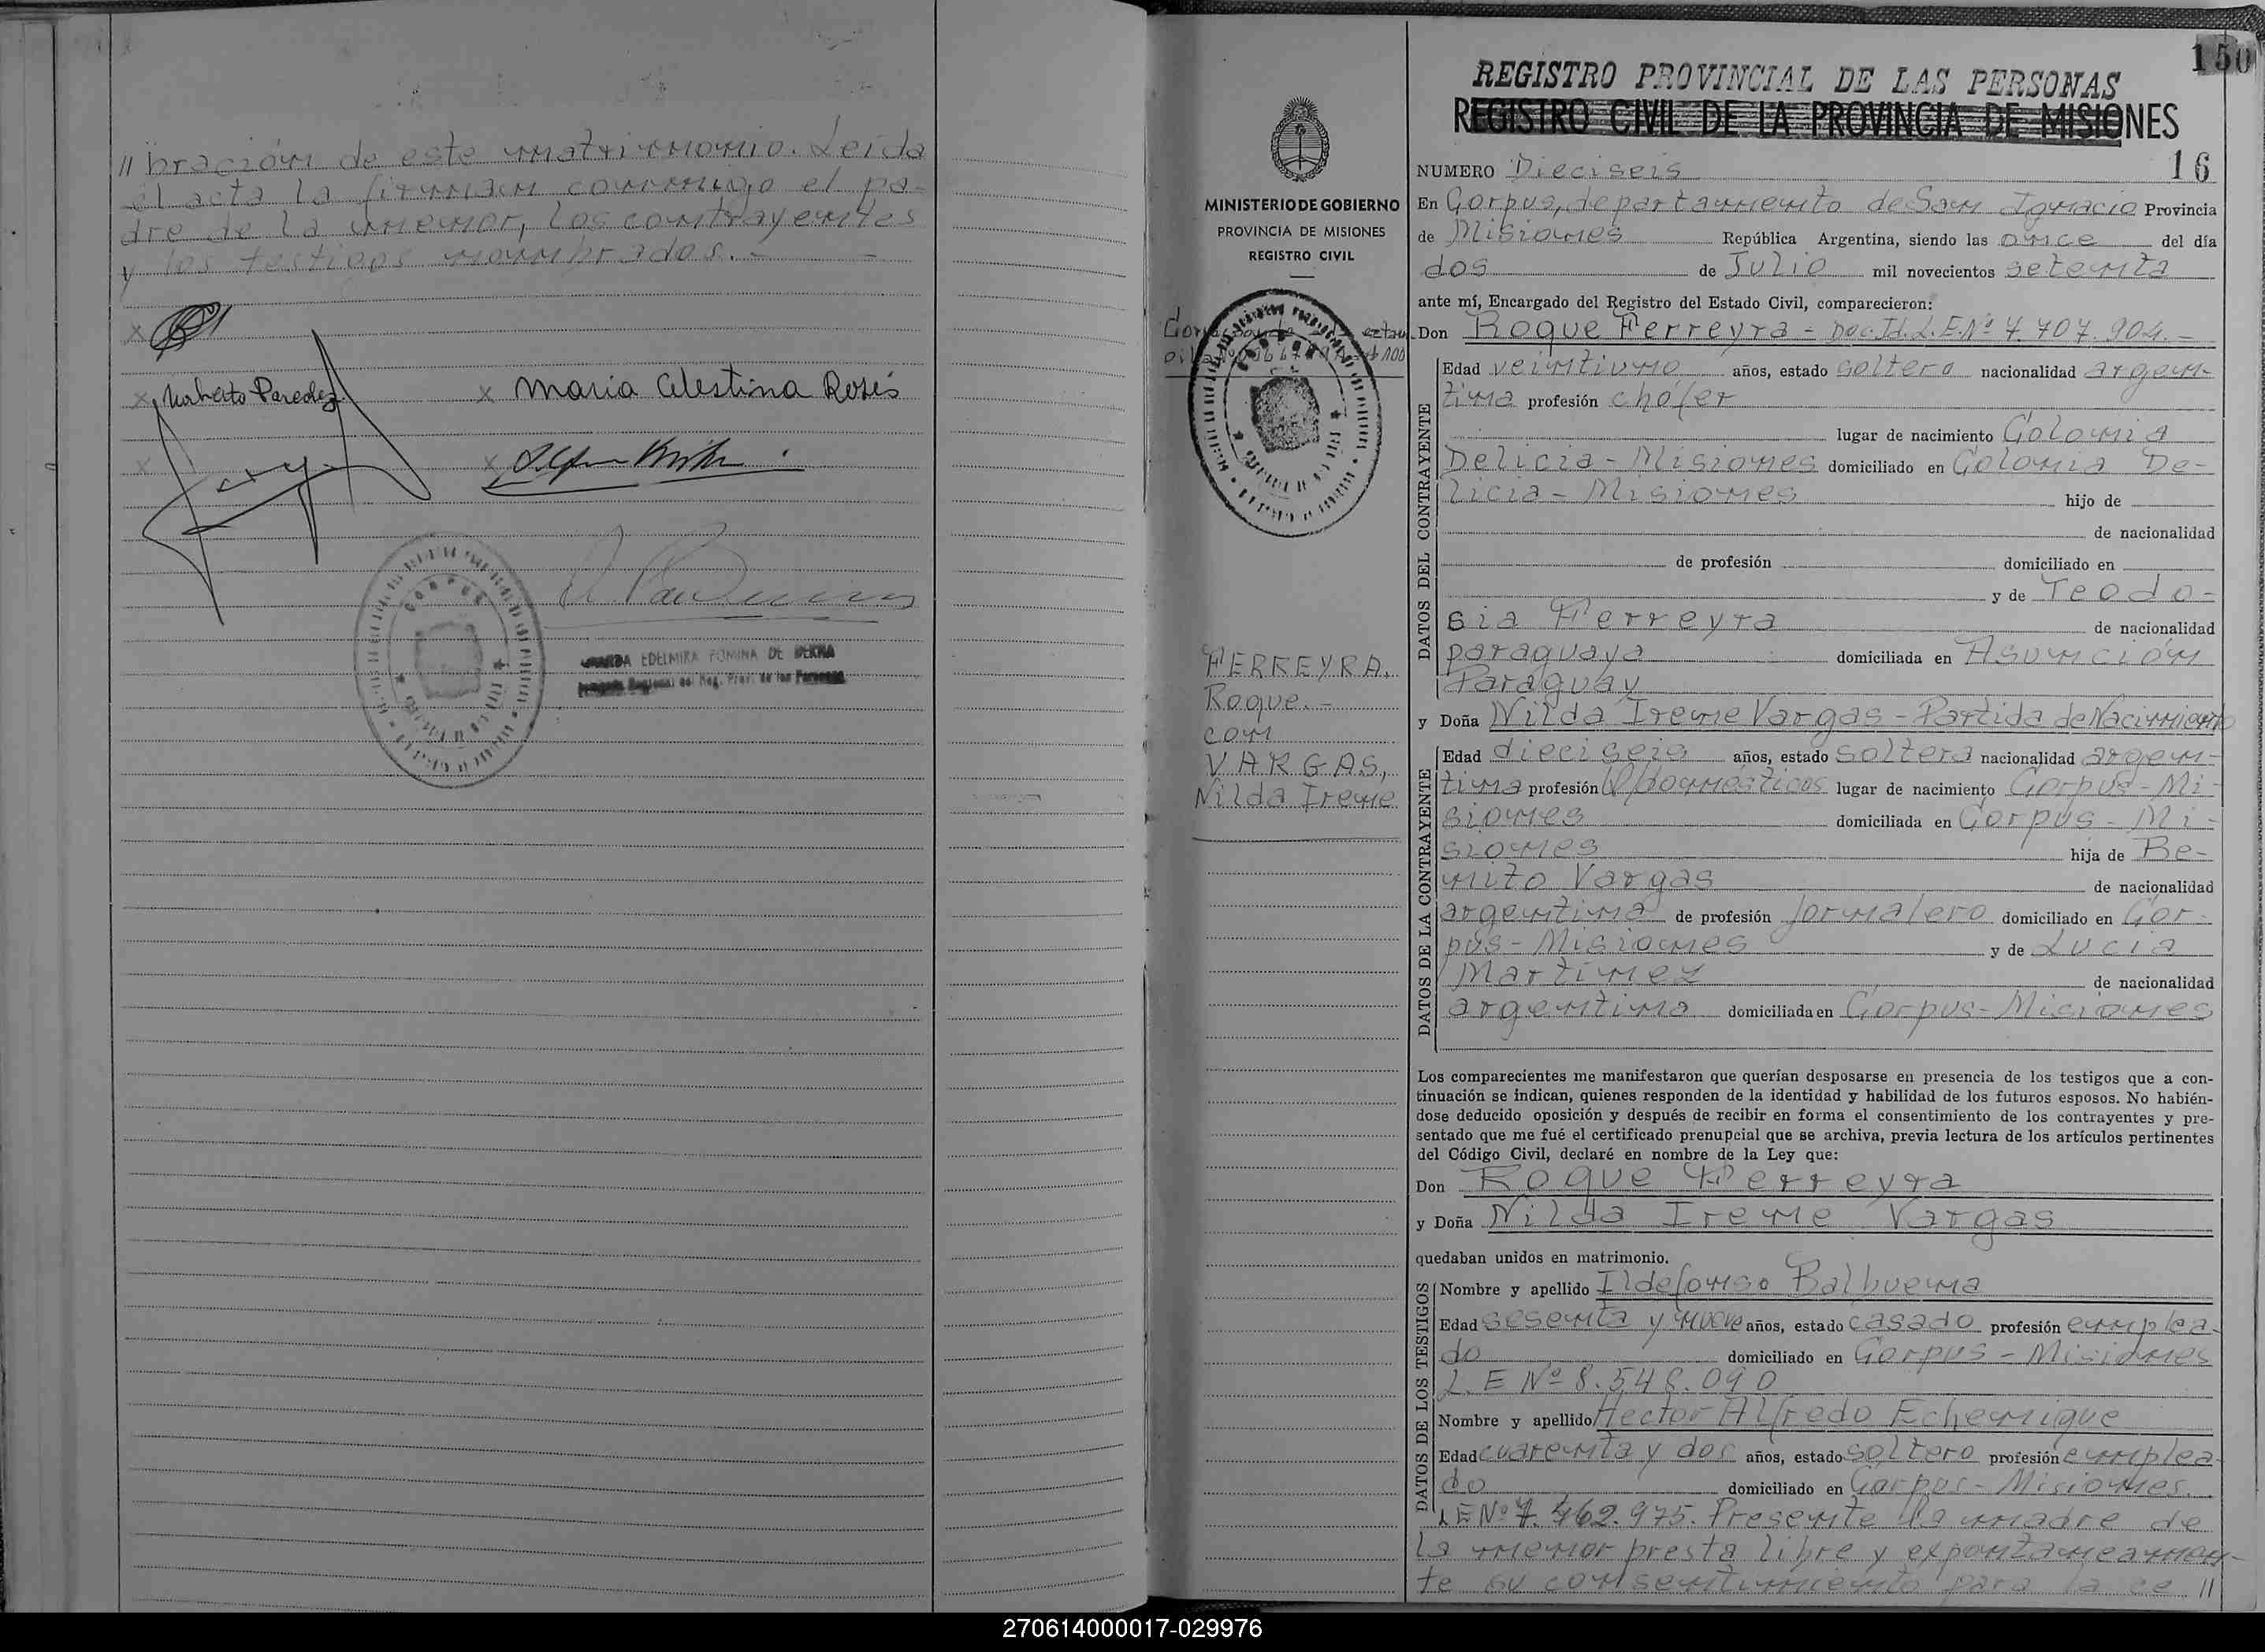 // bración de este matrimonio. Leída
el acta la firman conmigo el pa-
dre de la menor, los contrayentes
y los testigos nombrados. -
x
x Norberto Paredez
x Maria Celestina Rosés
x
x
CORPUS
EDELMIRA ROMINA DE
Reg. Prov. de las Personas
150
REGISTRO PROVINCIAL DE LAS PERSONAS
REGISTRO CIVIL DE LA PROVINCIA DE MISIONES
MINISTERIO DE GOBIERNO
PROVINCIA DE MISIONES
REGISTRO CIVIL
CORPUS
FERREYRA,
Roque. -
con
VARGAS,
Nilda Irene
NUMERO Dieciseis 16
En Corpus, departamento de San Ignacio Provincia
de Misiones República Argentina, siendo las once del día
dos de Julio mil novecientos setenta
ante mí, Encargado del Registro del Estado Civil, comparecieron:
Don Roque Ferreyra - Doc. Id. L.E. Nº 7.707.904. -
DATOS DEL CONTRAYENTE
Edad veintiuno años, estado soltero nacionalidad argen-
tina profesión chófer
lugar de nacimiento Colonia
Delicia - Misiones domiciliado en Colonia De-
licia - Misiones hijo de
de nacionalidad
de profesión domiciliado en
y de Teodo-
sia Ferreyra de nacionalidad
paraguaya domiciliada en Asunción
Paraguay
y Doña Nilda Irene Vargas - Partida de Nacimiento
DATOS DE LA CONTRAYENTE
Edad dieciseis años, estado soltera nacionalidad argen-
tina profesión Q/domésticos lugar de nacimiento Corpus - Mi-
siones domiciliada en Corpus - Mi-
siones hija de Be-
nito Vargas de nacionalidad
argentina de profesión jornalero domiciliado en Cor-
pus - Misiones y de Lucia
Martinez de nacionalidad
argentina domiciliada en Corpus - Misiones
Los comparecientes me manifestaron que querían desposarse en presencia de los testigos que a con-
tinuación se indican, quienes responden de la identidad y habilidad de los futuros esposos. No habién-
dose deducido oposición y después de recibir en forma el consentimiento de los contrayentes y pre-
sentado que me fué el certificado prenupcial que se archiva, previa lectura de los artículos pertinentes
del Código Civil, declaré en nombre de la Ley que:
Don Roque Ferreyra
y Doña Nilda Irene Vargas
quedaban unidos en matrimonio.
DATOS DE LOS TESTIGOS
Nombre y apellido Ildefonso Balbuena
Edad sesenta y nueve años, estado casado profesión emplea-
do domiciliado en Corpus - Misiones
L.E Nº 8.548.090
Nombre y apellido Hector Alfredo Echenique
Edad cuarenta y dos años, estado soltero profesión emplea-
do domiciliado en Corpus - Misiones.
LE Nº 7.462.975. Presente la madre de
la menor presta libre y expontaneamen-
te su consentimiento para la ce //
270614000017-029976